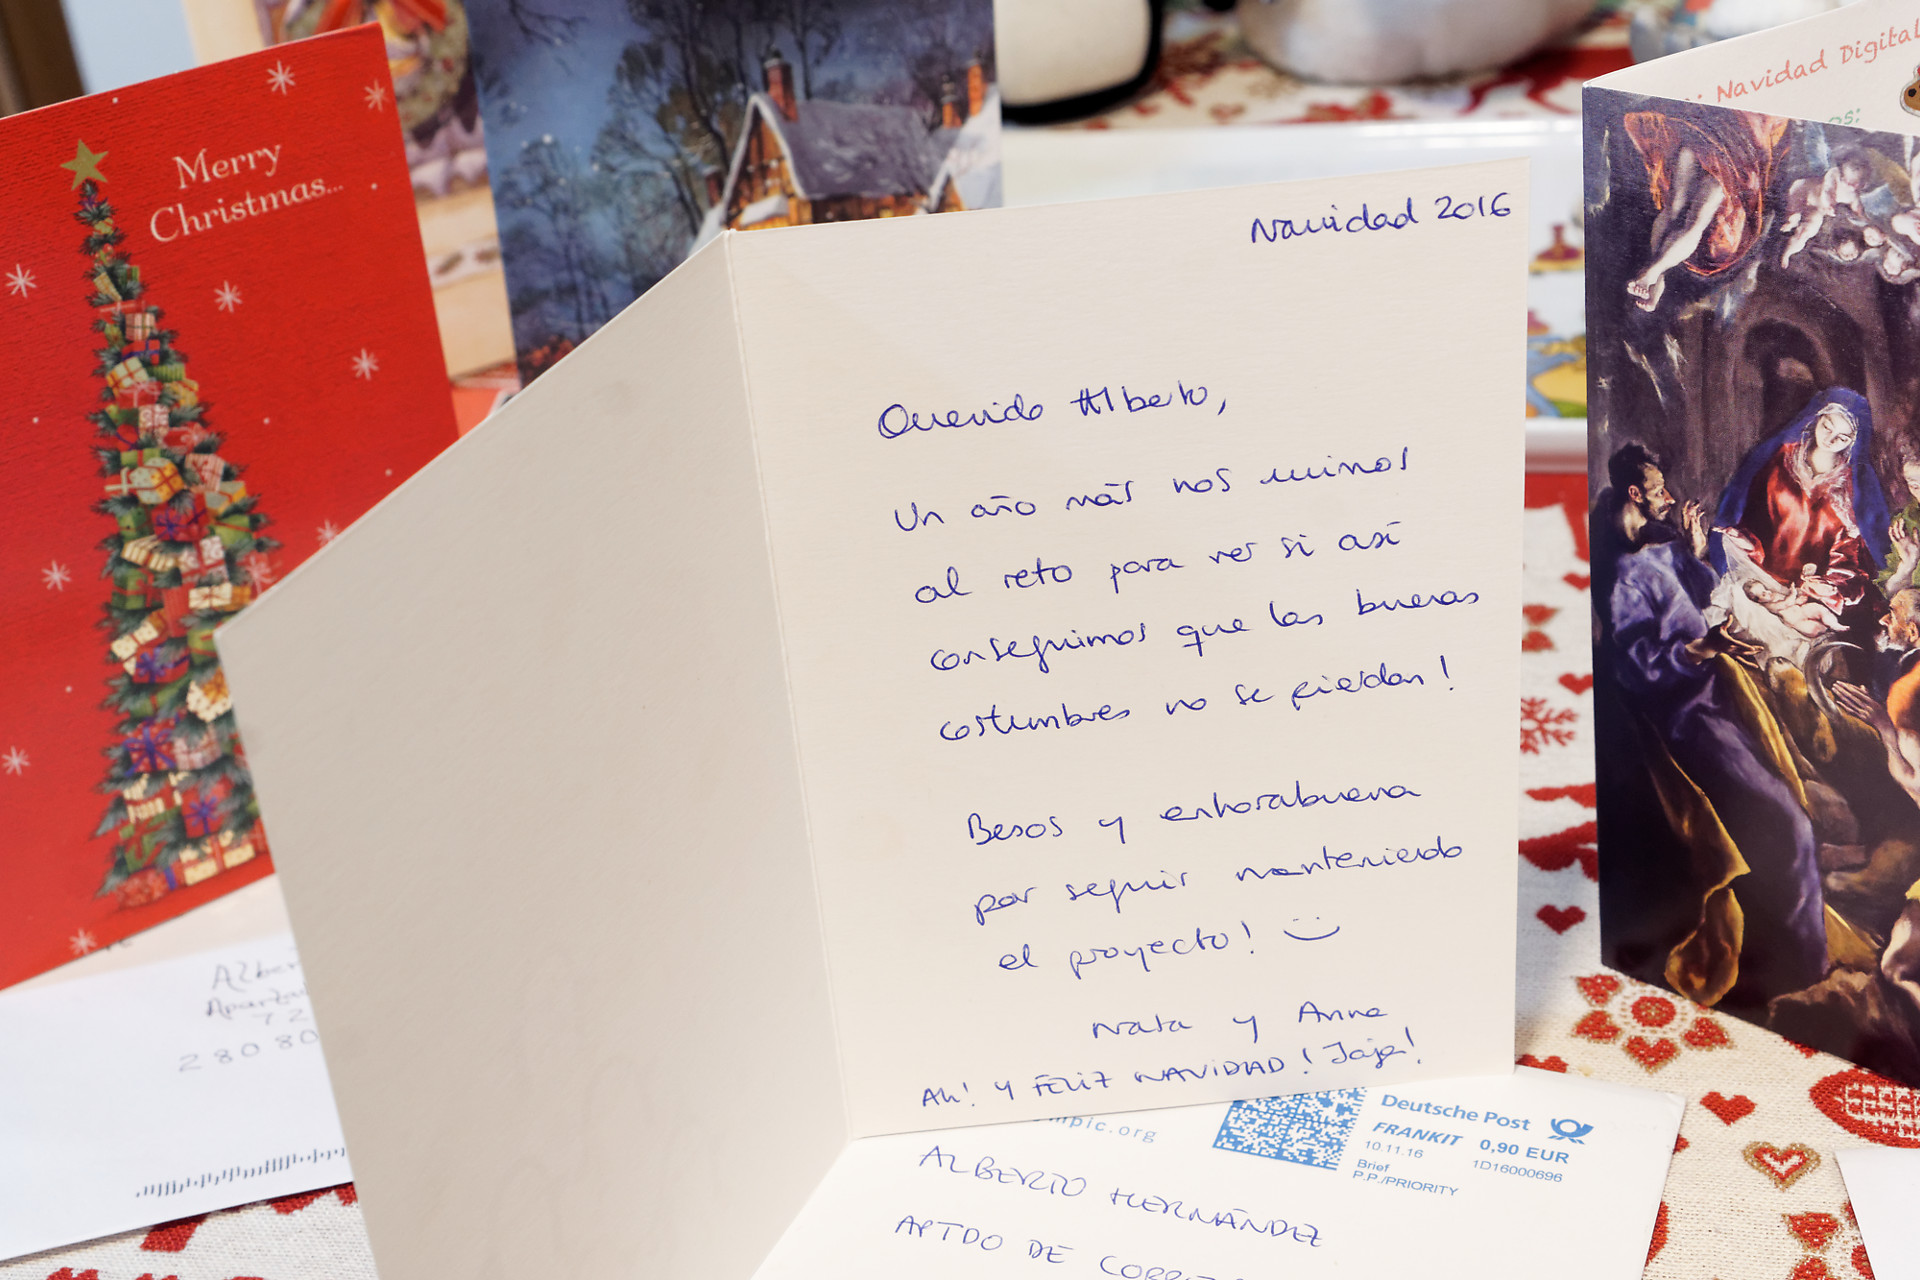 Merry
Christmas...
Navidad Digital
Navidad 2016
Querido Alberto,
Un año más nos unimos
al reto para ver si así
conseguimos que las buenas
costumbres no se pierdan!
Besos y enhorabuena
por seguir manteniendo
el proyecto! :)
Nata y Anne
Ah! Y FELIZ NAVIDAD! Jaja!
28080
mpic.org
Deutsche Post
FRANKIT 0,90 EUR
10.11.16 1D16000696
Brief
P.P./PRIORITY
ALBERTO HERNÁNDEZ
APTDO DE